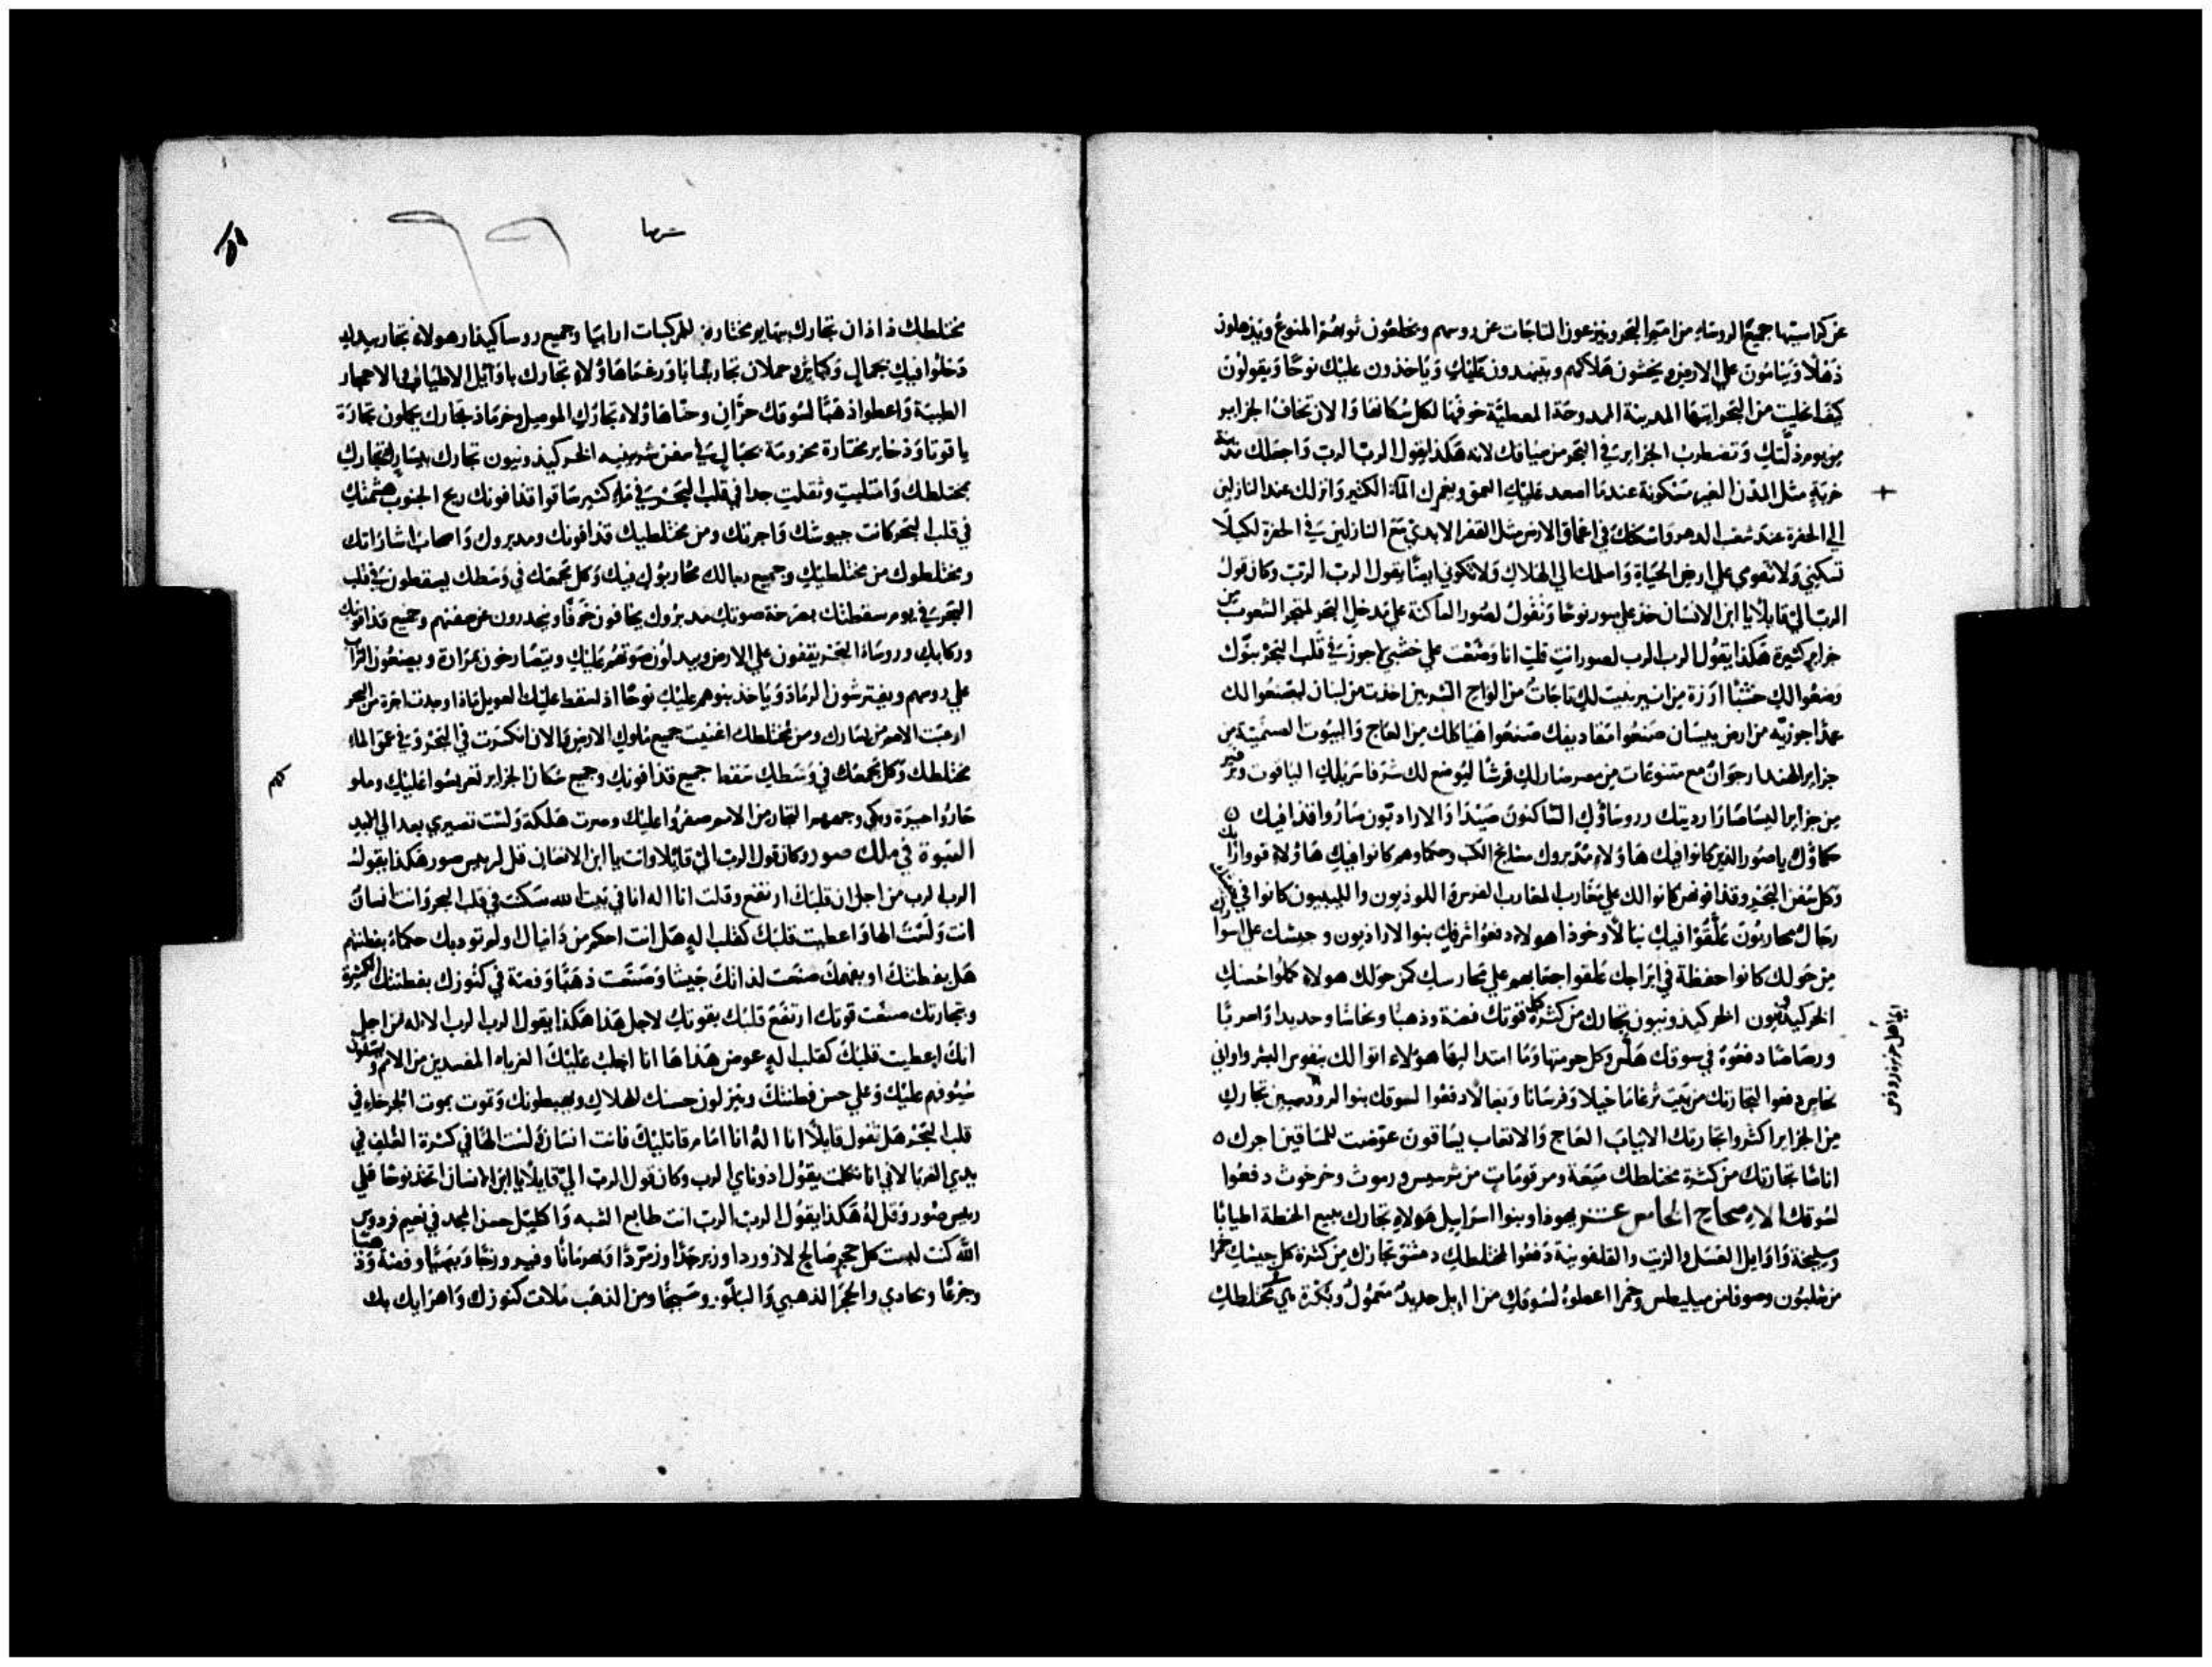 عن كراسيها جميع الروسا من امم البحر وينزعون التاجات عن روسهم ويخلعون ثوبهم المنوع ويذهلون
ذهلا وينامون على الارض ويخشون هلاكهم ويتنهدون عليك وياخذون عليك نوحا ويقولون
كيف انحليت من البحر ايتها المدينة الممدوحة المعطية خوفها لكل سكانها والان تخاف الجزاير
من يوم ذلتك وتضطرب الجزاير في البحر من ضيافك لانه هكذا يقول الرب الرب واجعلك مدينة
خربة مثل المدن الغير مسكونة عندما اصعد عليك العمق ويغمرك الماء الكثير وانزلك عند النازلين
الى الحفرة عند شعب الدهر واسكنك في اعماق الارض مثل القفر الابدي مع النازلين في الحفرة لكيلا
تسكني ولا تقومي على ارض الحياة واسلمك الى الهلاك ولا تكوني ايضا يقول الرب الرب وكان قول
الرب الي قايلا يا ابن الانسان خذ على صور نوحا وتقول لصور الساكنة على مدخل البحر لمتجر الشعوب من
جزاير كثيرة هكذا يقول الرب الرب لصور انت قلت انا وضعت علي حسني اجوز في قلب البحر بنوك
وضعوا لك خشبا ارزة من سنير بنيت لك تاجات من الواح الشربين اخذت من لبنان ليصنعوا لك
عمدا جوزية من ارض بيسان صنعوا مقاديفك صنعوا هياكلك من العاج والبيوت المسمنية من
جزاير الهند ارجوان مع متنوعات من مصر صار لك فرشا ليوضع لك شرفا سربلك الياقوت وقرمز
من جزاير اليسا صارا رديتك وروساؤك الساكنون صيدا والاراديون صاروا قذافيك
حكماؤك يا صور الذين كانوا فيك هاولاء مدبروك مشايخ الكتب وحكماوهم كانوا فيك هاولاء قووا راك
وكل سفن البحر وقذافوهم كانوا لك على مغارب المغارب الفرس واللوذيون والليبيون كانوا في جيشك
رجال محاربون علقوا فيك نبالا وخوذا هولاء دفعوا شرفك بنوا الاراذيون وجيشك على اسوارك
من حولك كانوا حفظة في ابراجك علقوا جعابهم على محارسك كمن حولك هولاء كملوا حسنك
الخركيذونيون الخركيذونيون تجارك من كثرة كل قوتك فضة وذهبا ونحاسا وحديدا واصربا
ورصاصا دفعوه في سوقك هلس وكل حومتها وما امتد اليها هولاء اتوا لك بنفوس البشر واواني
نحاس دفعوا لتجارتك من بيت ثرغاما خيلا وفرسانا وبغالا دفعوا لسوقك بنوا الروذسيين تجارك
من الجزاير اكثروا تجارتك الانياب العاج والانعاب يساقون عوضت للساقين اجرك
اناسا تجارتك من كثرة مختلطك ميعة ومرقومات من ثرسيس ورموث وخرخوث دفعوا
لسوقك الاصحاح الخامس عشر يهوذا وبنوا اسراييل هولاء تجارك ببيع الحنطة اطيابا
وسليخة واوايل العسل والزيت والقلفونية دفعوا لمختلطك دمشق تجارك من كثرة كل جيشك خمرا
من خلبون وصوفا من ميليطس وخمرا اعطوه لسوقك من ازيل حديد معمول وبكرة في مختلطك
ايها اهل جزيرة رودس
شرحها
مختلطك ذاذان تجارك ببهاير مختارة للمركبات ارابيا وجميع روسا كيذار هولاء تجار بيديك
دخلوا فيك بجمال وكباش وحملان تجار سابا ورغما هاولاء تجارك باوايل الاطياب في الاحجار
الطيبة واعطوا ذهبا لسوقك حران وحنا هاولاء تجارك الموصل وخرماذ تجارك يحملون تجارة
ياقوتا وذخاير مختارة محزومة بحبال في سفن شربينيه الخركيذونيون تجارك بيسارك تجارك
بمختلطك وامتليت وثقلت جدا في قلب البحر في ماء كثير ساقوا قذافونك ريح الجنوب هشمتك
في قلب البحر كانت جيوشك واجرتك ومن مختلطيك قذافونك ومدبروك واصحاب اشاراتك
ومختلطوك من مختلطيك وجميع رجالك محاربوك فيك وكل تجمعك في وسطك يسقطون في قلب
البحر في يوم سقطتك بصرخة صوتك مدبروك يخافون خوفا وينحدرون عن سفنهم وجميع قذافونك
وركابك وروساء البحر يقفون على الارض ويبدلون صوتهم عليك ويتصارخون بمرارة ويضعون التراب
علي روسهم ويفترشون الرماد وياخذ بنوهم عليك نوحا اذ لسقط عليك العويل ماذا وجدت اجرة من البحر
ارعبت الامم من يسارك ومن مختلطك اغنيت جميع ملوك الارض والان انكسرت في البحر وفي عمق الماء
مختلطك وكل تجمعك في وسطك سقط جميع قذافونك وجميع سكان الجزاير تعربسوا عليك وملوكهم
حاروا حيرة وبكى وجههم التجار من الامم صفروا عليك وصرت هلكة ولست تصيري بعد الى الابد
النبوة في ملك صور وكان قول الرب الي قايلا وانت يا ابن الانسان قل لرييس صور هكذا يقول
الرب الرب من اجل ان قلبك ارتفع وقلت انا اله انا في بيت الله سكنت في قلب البحر وانت انسان
انت ولست الها واعطيت قلبك كقلب اله هل انت احكم من دانيال اولم تودبك حكماء بفطنتهم
هل بفطنتك او بفهمك صنعت لذاتك جيشا وصنعت ذهبا وفضة في كنوزك بفطنتك الكثيرة
وبتجارتك صنعت قوتك ارتفع قلبك بقوتك لاجل هذا هكذا يقول الرب الرب الاله من اجل
انك اعطيت قلبك كقلب اله عوض هذا ها انا اجلب عليك الغرباء المفسدين من الامم ويستلون
سيوفهم عليك وعلى حسن فطنتك وينزلون حسنك للهلاك ويهبطونك وتموت بموت الجرحاء في
قلب البحر هل تقول قايلا انا اله انا امام قاتليك فانت انسان ولست الها في كثرة الغلف في
بيدي الغربا لاني انا تكلمت يقول اذوناي الرب وكان قول الرب الي قايلا يا ابن الانسان اتخذ نوحا على
رييس صور وقل له هكذا يقول الرب الرب انت طابع الشبه واكليل حسن المجد في نعيم فردوس
الله كنت لبست كل حجر صالح لازوردا وزبرجدا وزمردا وفضة وذهبا
وجزعا وبحادي والحجر الذهبي والبلور وسبجا ومن الذهب ملات كنوزك واهرايك بك